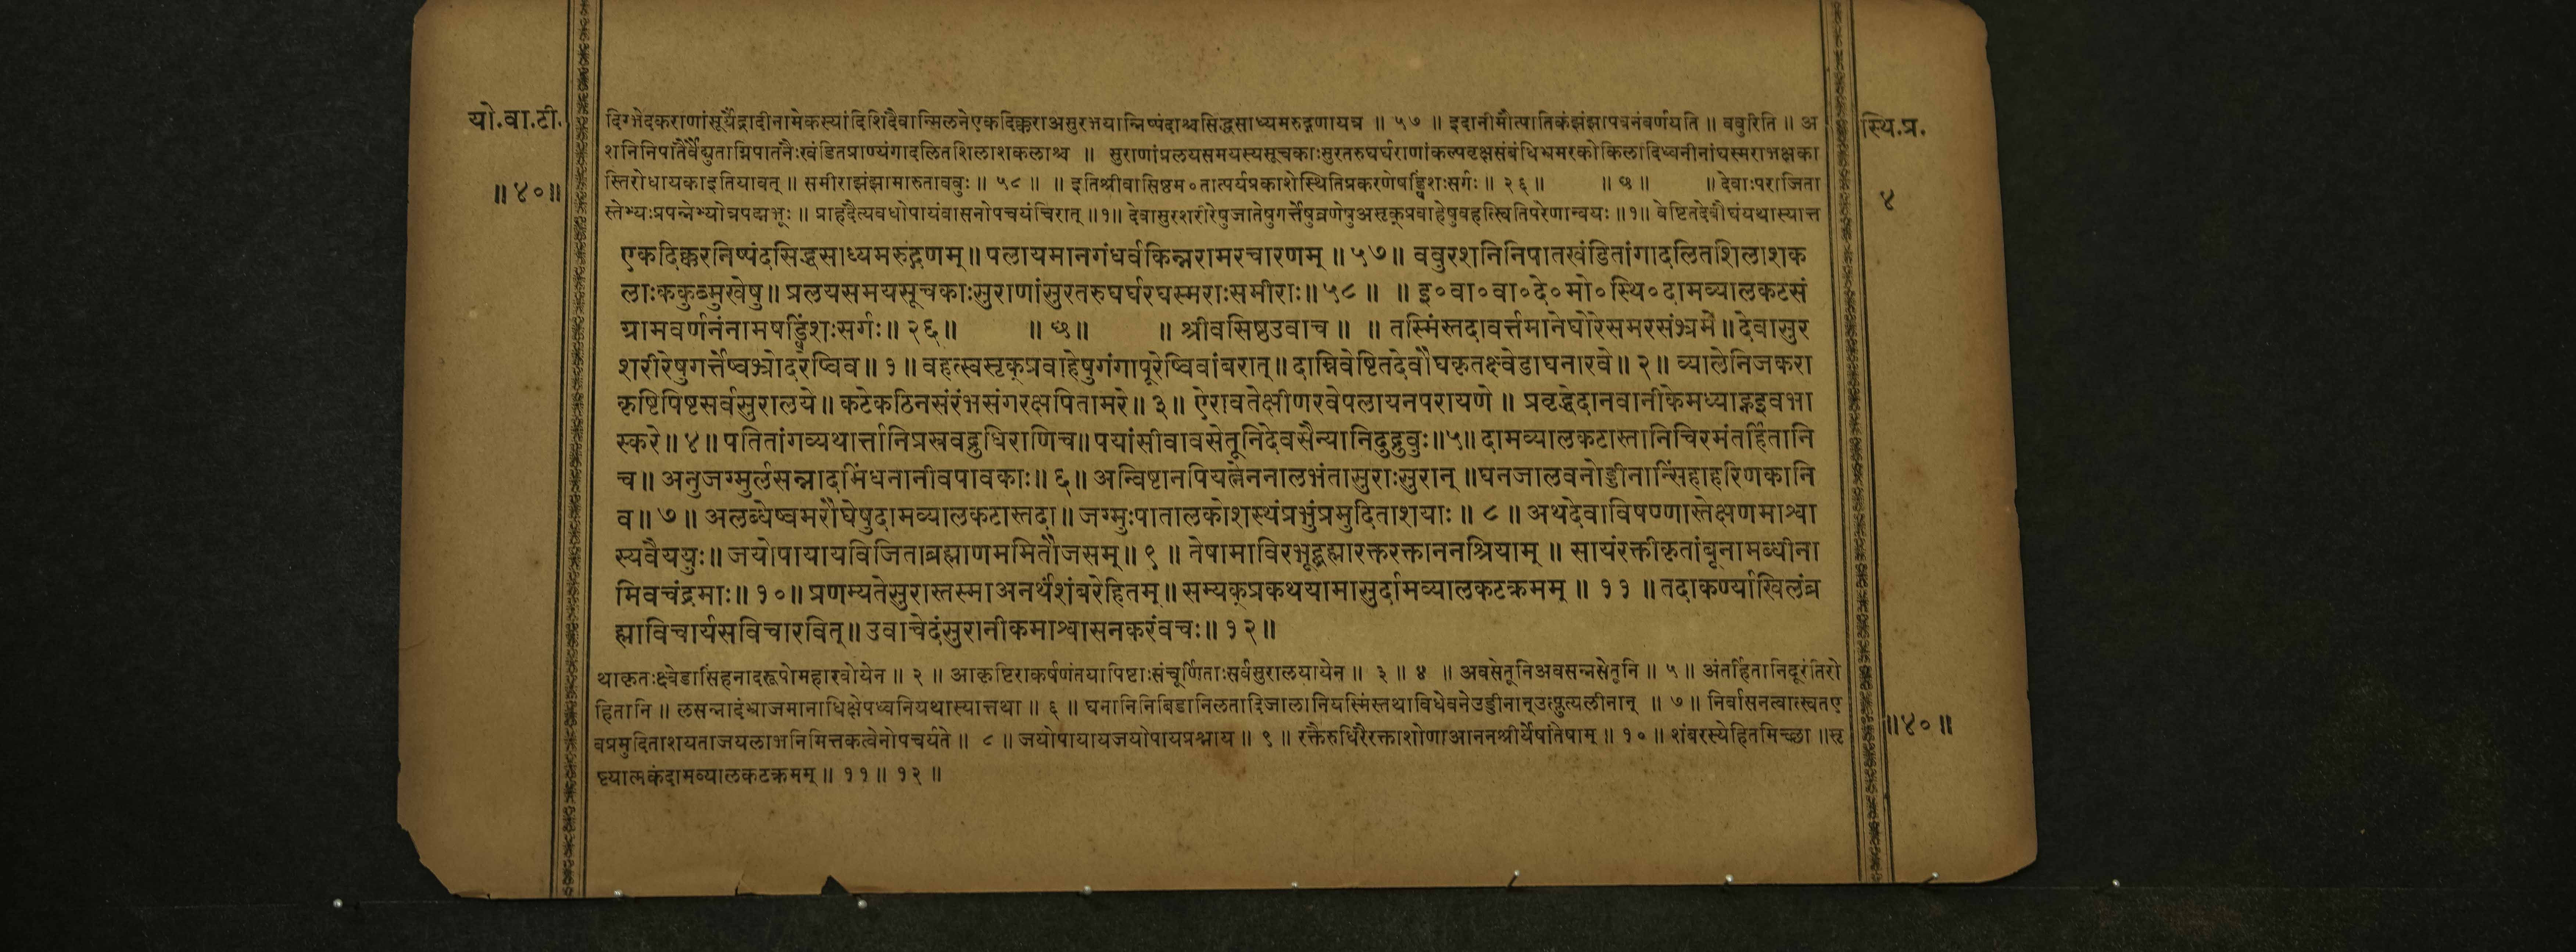 यो.वा.टी.
॥४०॥
दिग्भेदकराणांसूर्येंद्रादीनामेकस्यांदिशिदैवान्मिलनेएकदिक्कराअसुरभयान्निष्पंदाश्चसिद्धसाध्यमरुद्गणायत्र ॥ ५७ ॥ इदानीमौत्पातिकंझंझापवनंवर्णयति ॥ ववुरिति ॥ अ
शनिनिपातैर्वैद्युताग्निपातनैःखंडितप्राण्यंगादलितशिलाशकलाश्च ॥ सुराणांप्रलयसमयस्यसूचकाःसुरतरुघर्घराणांकल्पवृक्षसंबंधिभ्रमरकोकिलादिध्वनीनांघस्मराभक्षका
स्तिरोधायकाइतियावत् ॥ समीराझंझामारुताववुः ॥ ५८ ॥ ॥ इतिश्रीवासिष्ठम०तात्पर्यप्रकाशेस्थितिप्रकरणेषड्विंशःसर्गः ॥ २६ ॥ ॥ ७ ॥ ॥ देवाःपराजिता
स्तेभ्यःप्रपन्नेभ्योत्रपद्मभूः ॥ प्राहदैत्यवधोपायंवासनोपचयंचिरात् ॥१॥ देवासुरशरीरेषुजातेषुगर्त्तेषुव्रणेषुअसृक्प्रवाहेषुवहत्स्वितिपरेणान्वयः ॥१॥ वेष्टितदेवौघंयथास्यात्त
एकदिक्करनिष्पंदसिद्धसाध्यमरुद्गणम् ॥ पलायमानगंधर्वकिन्नरामरचारणम् ॥ ५७ ॥ ववुरशनिनिपातखंडितांगादलितशिलाशक
लाःककुब्मुखेषु ॥ प्रलयसमयसूचकाःसुराणांसुरतरुघर्घरघस्मराःसमीराः ॥ ५८ ॥ ॥ इ०वा०वा०दे०मो०स्थि०दामव्यालकटसं
ग्रामवर्णनंनामषड्विंशःसर्गः ॥ २६ ॥ ॥ ७ ॥ ॥ श्रीवसिष्ठउवाच ॥ ॥ तस्मिंस्तदावर्त्तमानेघोरेसमरसंभ्रमे ॥ देवासुर
शरीरेषुगर्त्तेष्वभ्रोदरेष्विव ॥ १ ॥ वहत्स्वसृक्प्रवाहेषुगंगापूरेष्विवांबरात् ॥ दाम्निवेष्टितदेवौघकृतक्ष्वेडाघनारवे ॥ २ ॥ व्यालेनिजकरा
कृष्टिपिष्टसर्वसुरालये ॥ कटेकठिनसंरंभसंगरक्षपितामरे ॥ ३ ॥ ऐरावतेक्षीणरवेपलायनपरायणे ॥ प्रवृद्धेदानवानीकेमध्याह्नइवभा
स्करे ॥ ४ ॥ पतितांगव्यथार्त्तानिप्रस्रवद्रुधिराणिच ॥ पयांसीवावसेतूनिदेवसैन्यानिदुद्रुवुः ॥५॥ दामव्यालकटास्तानिचिरमंतर्हितानि
च ॥ अनुजग्मुर्लसन्नादमिंधनानीवपावकाः ॥ ६ ॥ अन्विष्टानपियत्नेननालभंतासुराःसुरान् ॥ घनजालवनोड्डीनान्सिंहाहरिणकानि
व ॥ ७ ॥ अलब्धेष्वमरौघेषुदामव्यालकटास्तदा ॥ जग्मुःपातालकोशस्थंप्रभुंप्रमुदिताशयाः ॥ ८ ॥ अथदेवाविषण्णास्तेक्षणमाश्वा
स्यवैययुः ॥ जयोपायायविजिताब्रह्माणममितौजसम् ॥ ९ ॥ तेषामाविरभूद्ब्रह्मारक्तरक्ताननश्रियाम् ॥ सायंरक्तीकृतांबूनामब्धीना
मिवचंद्रमाः ॥ १० ॥ प्रणम्यतेसुरास्तस्माअनर्थंशंबरेहितम् ॥ सम्यक्प्रकथयामासुर्दामव्यालकटक्रमम् ॥ ११ ॥ तदाकर्ण्याखिलंब्र
ह्माविचार्यसविचारवित् ॥ उवाचेदंसुरानीकमाश्वासनकरंवचः ॥ १२ ॥
थाकृतःक्ष्वेडासिंहनादरूपोमहारवोयेन ॥ २ ॥ आकृष्टिराकर्षणंतयापिष्टाःसंचूर्णिताःसर्वसुरालयायेन ॥ ३ ॥ ४ ॥ अवसेतूनिअवसन्नसेतूनि ॥ ५ ॥ अंतर्हितानिदूरंतिरो
हितानि ॥ लसन्नादंभ्राजमानाधिक्षेपध्वनियथास्यात्तथा ॥ ६ ॥ घनानिनिबिडानिलतादिजालानियस्मिंस्तथाविधेवनेउड्डीनान्उत्प्लुत्यलीनान् ॥ ७ ॥ निर्वासनत्वात्स्वतए
वप्रमुदिताशयताजयलाभनिमित्तकत्वेनोपचर्यते ॥ ८ ॥ जयोपायायजयोपायप्रश्नाय ॥ ९ ॥ रक्तैरुधिरैरक्ताशोणाआननश्रीर्येषांतेषाम् ॥ १० ॥ शंबरस्येहितमिच्छा ॥सृ
ष्ट्यात्मकंदामव्यालकटक्रमम् ॥ ११ ॥ १२ ॥
स्थि.प्र.
४
॥४०॥